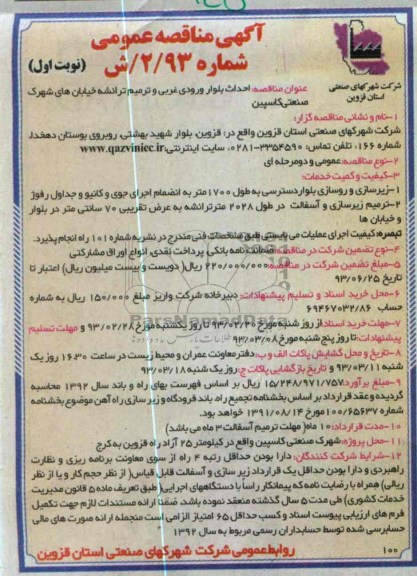 آگهی مناقصه عمومی
شماره ۲/۹۳/ش
(نوبت اول)
شرکت شهرکهای صنعتی
استان قزوین
عنوان مناقصه: احداث بلوار ورودی غربی و ترمیم ترانشه خیابان های شهرک
صنعتی کاسپین
۱-نام و نشانی مناقصه گزار:
شرکت شهرکهای صنعتی استان قزوین واقع در: قزوین، بلوار شهید بهشتی، روبروی بوستان دهخدا،
شماره ۱۶۶، تلفن تماس: ۳۳۵۴۵۹۰-۰۲۸۱، سایت اینترنتی: www.qazviniec.ir
۲-نوع مناقصه: عمومی و دومرحله ای
۳-کیفیت و کمیت خدمات:
۱-زیرسازی و روسازی بلوار دسترسی به طول ۱۷۰۰ متر به انضمام اجرای جوی و کانیو و جداول رفوژ
۲-ترمیم زیرسازی و آسفالت در طول ۲۰۲۸ متر ترانشه به عرض تقریبی ۷۰ سانتی متر در بلوار
و خیابان ها
تبصره: کیفیت اجرای عملیات می بایستی طبق مشخصات فنی مندرج در نشریه شماره ۱۰۱ راه انجام پذیرد.
۴-نوع تضمین شرکت در مناقصه: ضمانت نامه بانکی، پرداخت نقدی، انواع اوراق مشارکتی
۵-مبلغ تضمین شرکت در مناقصه: ۲۲۰/۰۰۰/۰۰۰ ریال (دویست و بیست میلیون ریال) اعتبار تا
تاریخ ۹۳/۰۶/۲۵
۶-محل خرید اسناد و تسلیم پیشنهادات: دبیرخانه شرکت واریز مبلغ ۱۵۰/۰۰۰ ریال به شماره
حساب ۶۹۴۶۷۰۳۲/۸۶
۷-مهلت خرید اسناد: از روز شنبه مورخ ۹۳/۰۲/۲۰ تا روز یکشنبه مورخ ۹۳/۰۲/۲۸ و مهلت تسلیم
پیشنهادات: تا روز پنج شنبه مورخ ۹۳/۰۳/۰۸
۸-تاریخ و محل گشایش پاکات الف و ب: دفتر معاونت عمران و محیط زیست در ساعت ۱۶:۳۰ روز یک
شنبه ۹۳/۰۳/۱۱ و تاریخ بازگشایی پاکات ج: روز یک شنبه ۹۳/۰۳/۱۸
۹-مبلغ برآورد: ۱۵/۲۴۸/۹۷۱/۷۵۷ ریال بر اساس فهرست بهای راه و باند سال ۱۳۹۲ محاسبه
گردیده و عقد قرارداد بر اساس بخشنامه تجمیع راه، باند فرودگاه و زیر سازی راه آهن موضوع بخشنامه
شماره ۱۰۰/۶۵۶۳۷ مورخ ۱۳۹۱/۰۸/۱۴ خواهد بود.
۱۰-مدت قرارداد: ۱۰ ماه (مهلت ترمیم آسفالت ۳ ماه می باشد)
۱۱-محل پروژه: شهرک صنعتی کاسپین واقع در کیلومتر ۲۵ آزاد راه قزوین به کرج
۱۲-شرایط شرکت کنندگان: دارا بودن حداقل رتبه ۴ راه از سوی معاونت برنامه ریزی و نظارت
راهبردی و دارا بودن حداقل یک قرارداد زیر سازی و آسفالت قابل قیاس (از نظر حجم کار و یا از نظر
ریالی) همراه با رضایت نامه که پیمانکار راسا با دستگاههای اجرایی (طبق تعریف ماده ۵ قانون مدیریت
خدمات کشوری) طی مدت ۵ سال گذشته منعقد نموده باشد، ضمنا ارائه مستندات لازم جهت تکمیل
فرم های ارزیابی پیوست اسناد و کسب حداقل ۶۵ امتیاز الزامی است منجمله ارائه صورت های مالی
حسابرسی شده توسط حسابداران رسمی مربوط به سال ۱۳۹۲
روابط عمومی شرکت شهرکهای صنعتی استان قزوین
۱۰۰